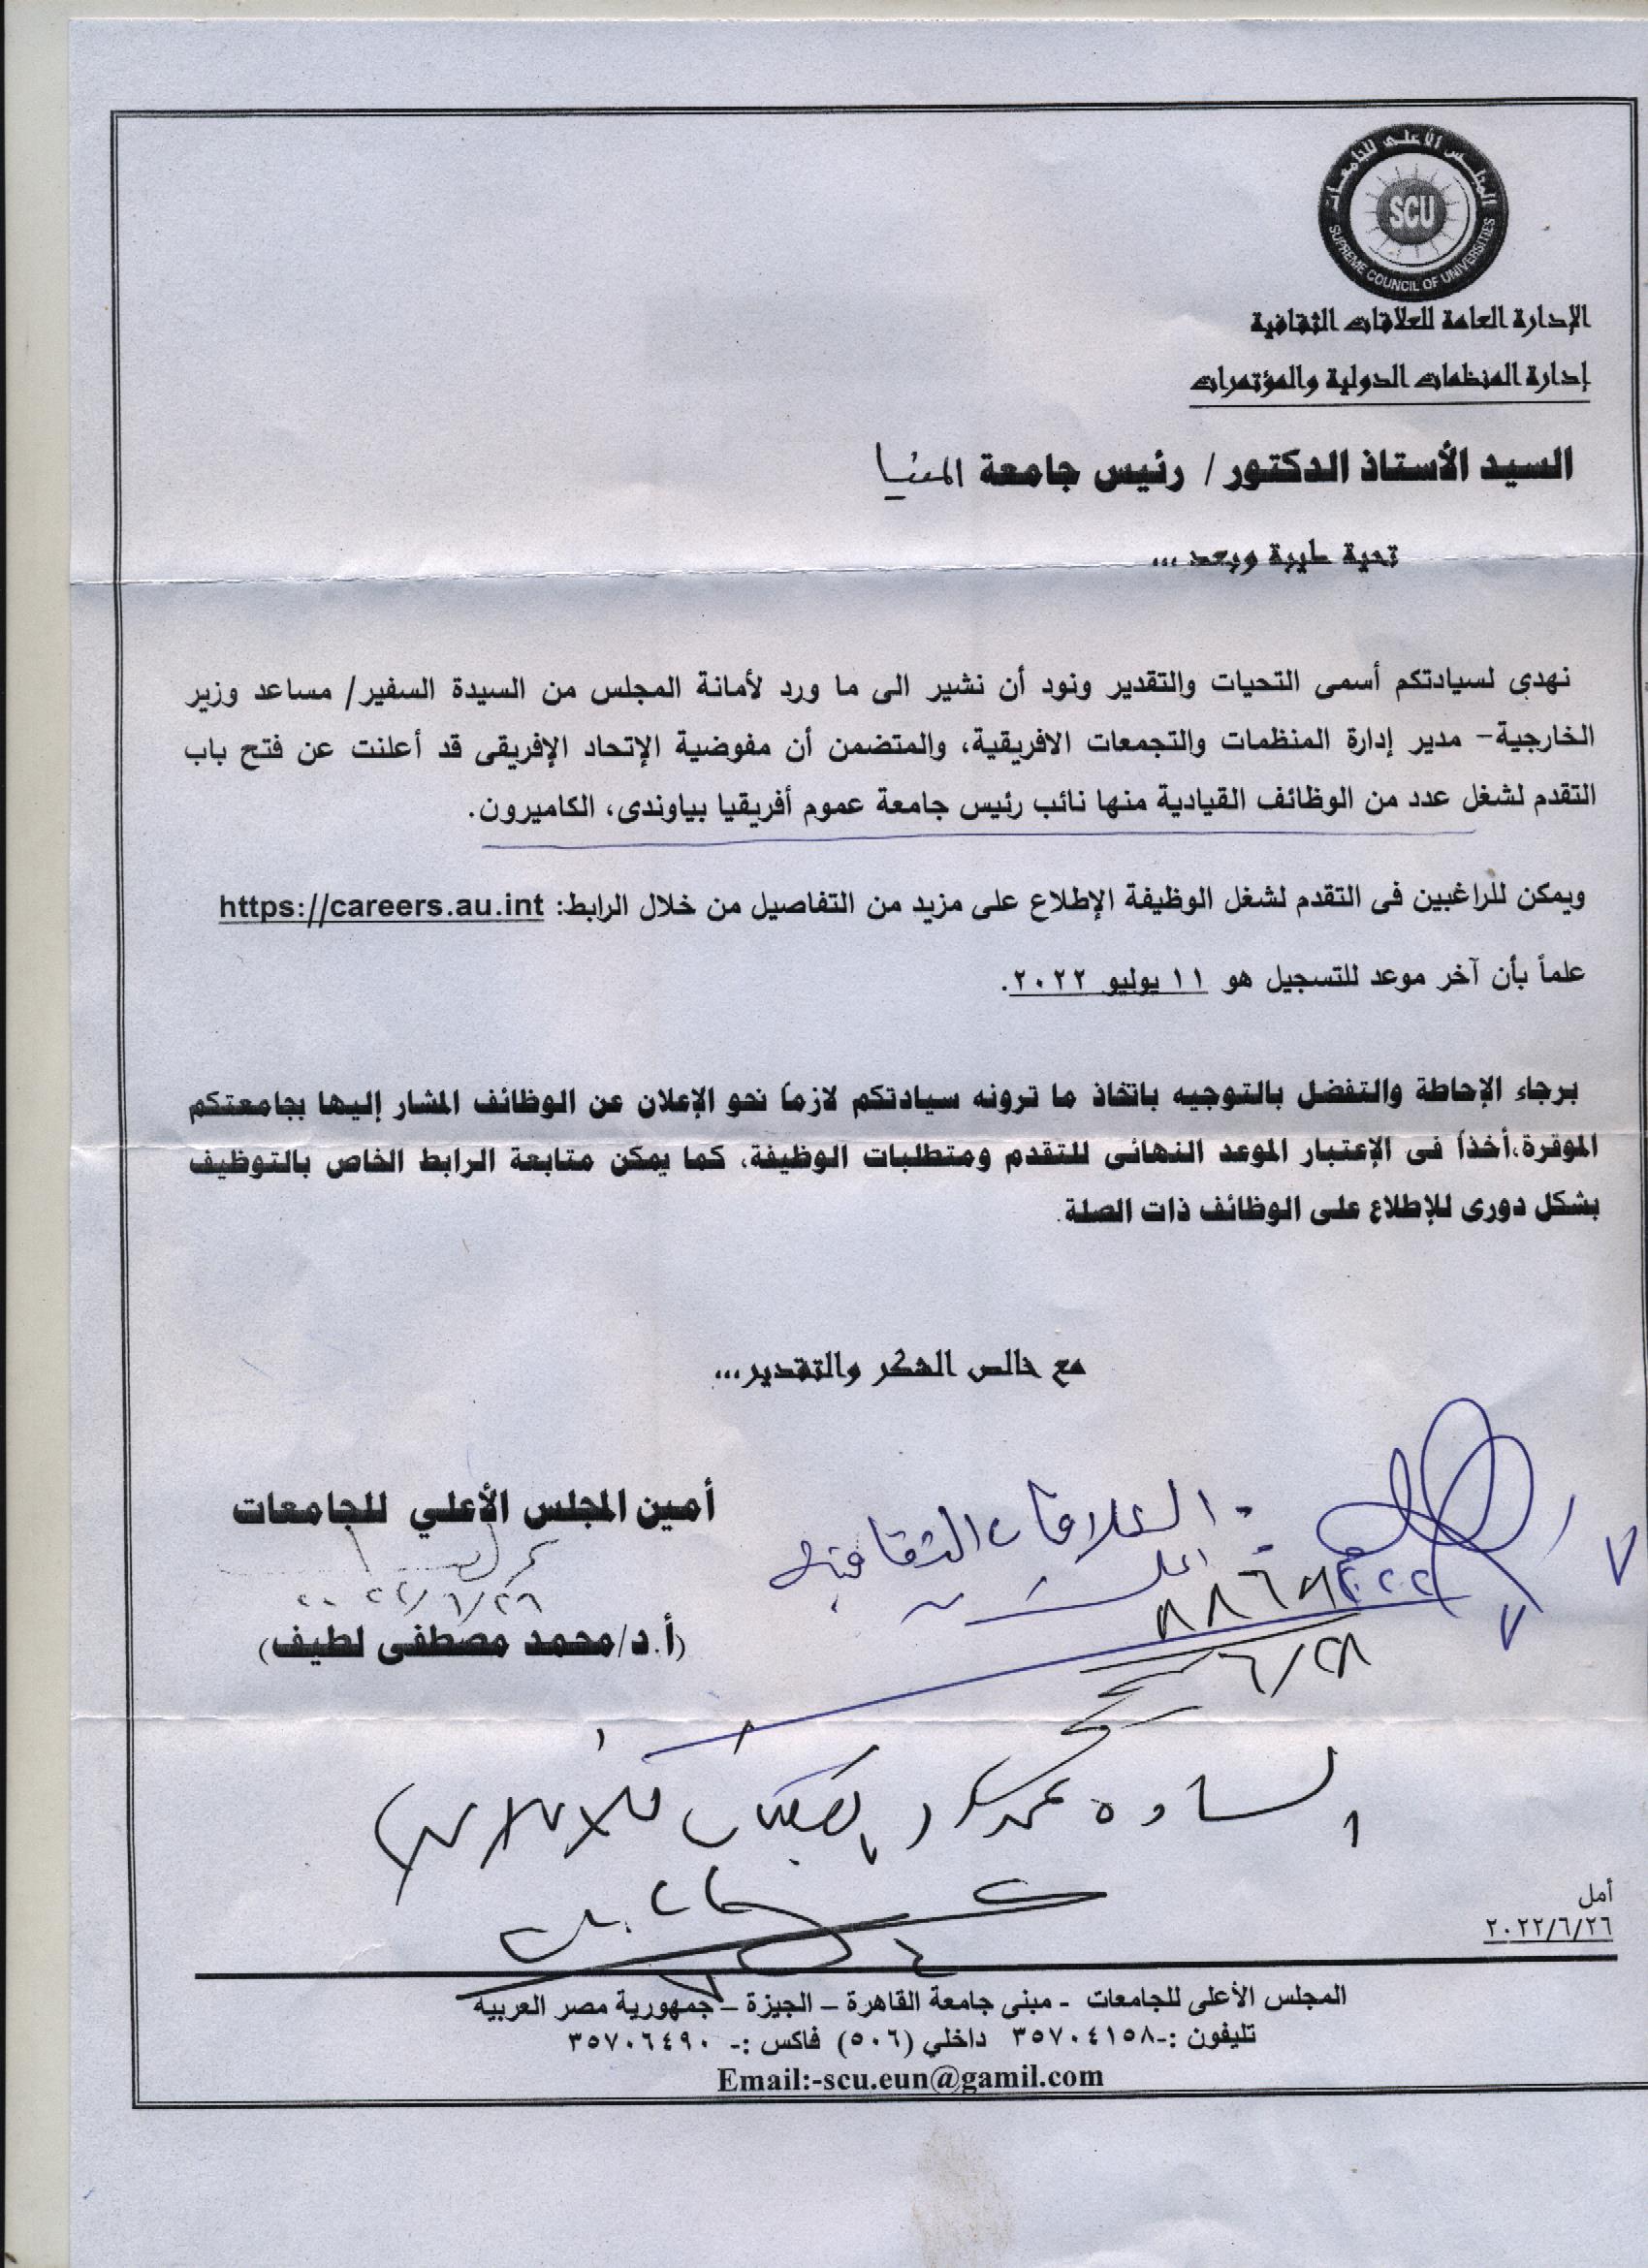 المجلس الأعلى للجامعات
SCU
SUPREME COUNCIL OF UNIVERSITIES
الإدارة العامة للعلاقات الثقافية
إدارة المنظمات الدولية والمؤتمرات
السيد الأستاذ الدكتور / رئيس جامعة المنيا
تحية طيبة وبعد ...
نهدي لسيادتكم أسمى التحيات والتقدير ونود أن نشير الى ما ورد لأمانة المجلس من السيدة السفير/ مساعد وزير
الخارجية- مدير إدارة المنظمات والتجمعات الافريقية، والمتضمن أن مفوضية الإتحاد الإفريقى قد أعلنت عن فتح باب
التقدم لشغل عدد من الوظائف القيادية منها نائب رئيس جامعة عموم أفريقيا بياوندى، الكاميرون.
ويمكن للراغبين فى التقدم لشغل الوظيفة الإطلاع على مزيد من التفاصيل من خلال الرابط: https://careers.au.int
علماً بأن آخر موعد للتسجيل هو ١١ يوليو ٢٠٢٢.
برجاء الإحاطة والتفضل بالتوجيه باتخاذ ما ترونه سيادتكم لازماً نحو الإعلان عن الوظائف المشار إليها بجامعتكم
الموقرة،أخذاً فى الإعتبار الموعد النهائى للتقدم ومتطلبات الوظيفة، كما يمكن متابعة الرابط الخاص بالتوظيف
بشكل دورى للإطلاع على الوظائف ذات الصلة.
مع خالص الشكر والتقدير...
أمين المجلس الأعلي للجامعات
العلاقات الثقافية
٢٠٢٢/٦/٢٦
(أ.د/محمد مصطفى لطيف)
٦/٢٨
السادة
أمل
٢٠٢٢/٦/٢٦
المجلس الأعلى للجامعات - مبنى جامعة القاهرة – الجيزة – جمهورية مصر العربية
تليفون :-٣٥٧٠٤١٥٨ داخلي (٥٠٦) فاكس :- ٣٥٧٠٦٤٩٠
Email:-scu.eun@gamil.com